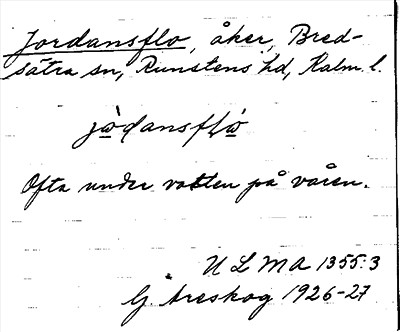 Jordansflo, åker, Bred-
sätra sn, Runstens hd, Kalm. l.
jὼdansflὼ
Ofta under vatten på våren.
ULMA 1355:3
G. Areskog 1926-27